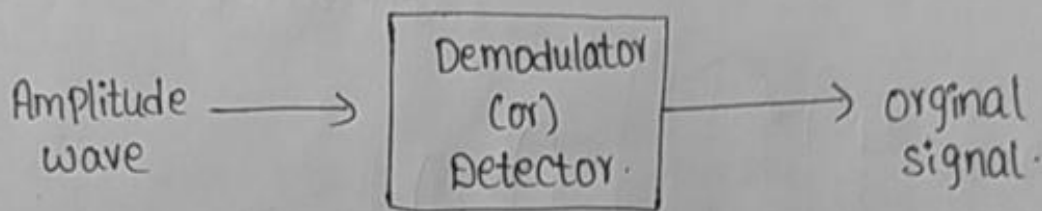 Amplitude
wave
Demodulator
(or)
Detector.
orginal
signal.